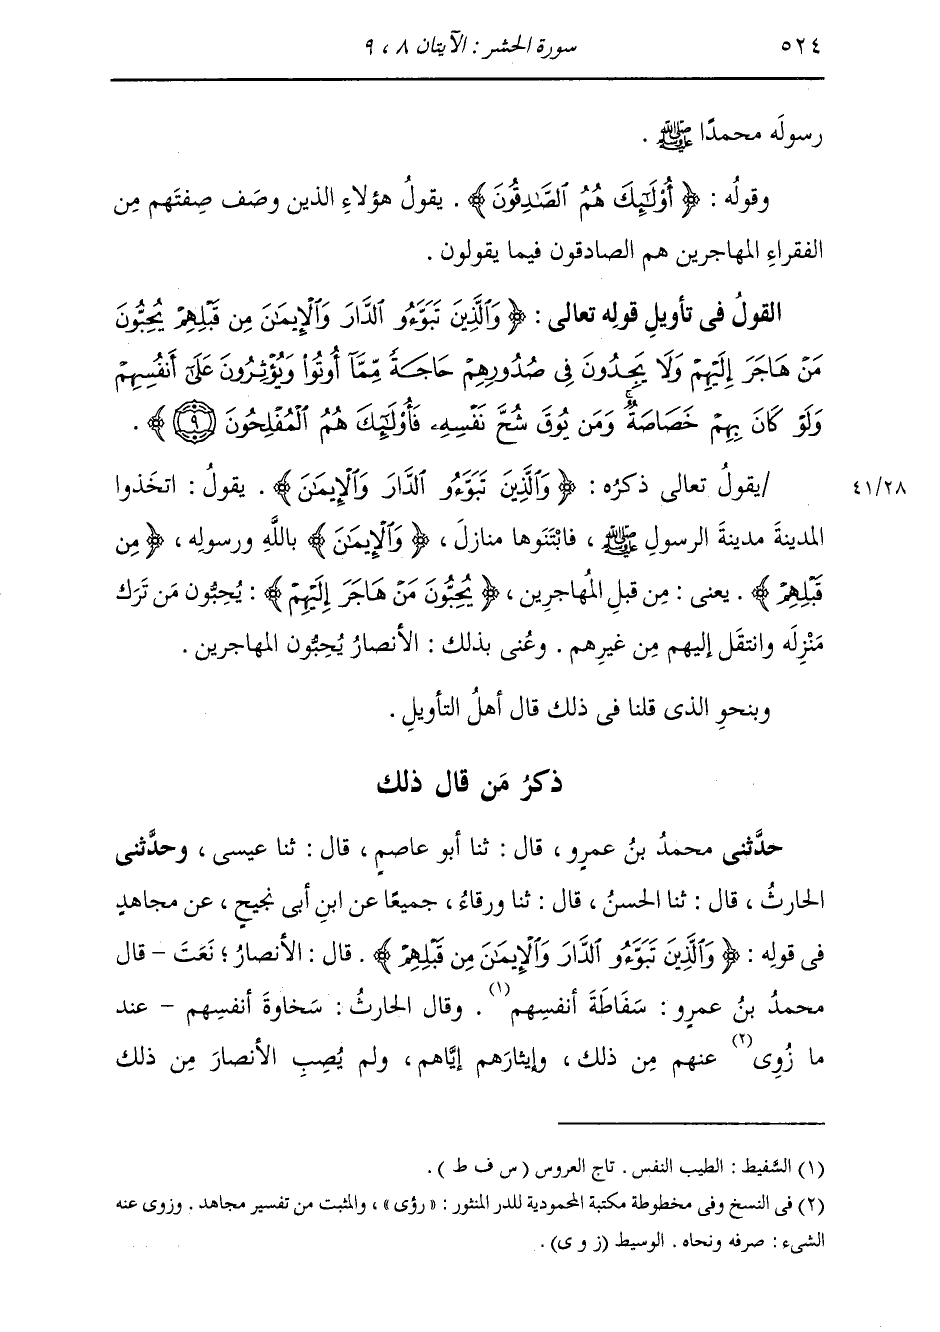 ٥٢٤ سورة الحشر : الآيتان ٨ ، ٩
رسولَه محمدًا ﷺ .
وقولُه : ﴿ أُوْلَٰٓئِكَ هُمُ ٱلصَّٰدِقُونَ ﴾ . يقولُ هؤلاءِ الذين وصَف صِفتَهم مِن
الفقراءِ المهاجرين هم الصادقون فيما يقولون .
القولُ فى تأويلِ قولِه تعالى : ﴿ وَٱلَّذِينَ تَبَوَّءُو ٱلدَّارَ وَٱلْإِيمَٰنَ مِن قَبْلِهِمْ يُحِبُّونَ
مَنْ هَاجَرَ إِلَيْهِمْ وَلَا يَجِدُونَ فِى صُدُورِهِمْ حَاجَةً مِّمَّآ أُوتُواْ وَيُؤْثِرُونَ عَلَىٰٓ أَنفُسِهِمْ
وَلَوْ كَانَ بِهِمْ خَصَاصَةٌۚ وَمَن يُوقَ شُحَّ نَفْسِهِۦ فَأُوْلَٰٓئِكَ هُمُ ٱلْمُفْلِحُونَ ۝٩ ﴾ .
٤١/٢٨ /يقولُ تعالى ذكرُه : ﴿ وَٱلَّذِينَ تَبَوَّءُو ٱلدَّارَ وَٱلْإِيمَٰنَ ﴾ . يقولُ : اتخَذوا
المدينةَ مدينةَ الرسولِ ﷺ ، فابْتَنَوها منازلَ ، ﴿ وَٱلْإِيمَٰنَ ﴾ باللَّهِ ورسولِه ، ﴿ مِن
قَبْلِهِمْ ﴾ . يعنى : مِن قبلِ المُهاجرِين ، ﴿ يُحِبُّونَ مَنْ هَاجَرَ إِلَيْهِمْ ﴾ : يُحِبُّون مَن تَرَك
مَنْزِلَه وانتقَل إليهم مِن غيرِهم . وعُنى بذلك : الأنصارُ يُحِبُّون المهاجرين .
وبنحوِ الذى قلنا فى ذلك قال أهلُ التأويلِ .
ذكرُ مَن قال ذلك
حدَّثنى محمدُ بنُ عمرٍو ، قال : ثنا أبو عاصمٍ ، قال : ثنا عيسى ، وحدَّثنى
الحارثُ ، قال : ثنا الحسنُ ، قال : ثنا ورقاءُ ، جميعًا عن ابنِ أبى نجيحٍ ، عن مجاهدٍ
فى قولِه : ﴿ وَٱلَّذِينَ تَبَوَّءُو ٱلدَّارَ وَٱلْإِيمَٰنَ مِن قَبْلِهِمْ ﴾ . قال : الأنصارُ ؛ نَعَتَ – قال
محمدُ بنُ عمرٍو : سَفَاطَةَ أنفسِهم(١) . وقال الحارثُ : سَخاوةَ أنفسِهم – عند
ما زُوِى(٢) عنهم مِن ذلك ، وإيثارَهم إيَّاهم ، ولم يُصِبِ الأنصارَ مِن ذلك
(١) السَّفيط : الطيب النفس . تاج العروس ( س ف ط ) .
(٢) فى النسخ وفى مخطوطة مكتبة المحمودية للدر المنثور : « رؤى » ، والمثبت من تفسير مجاهد . وزوى عنه
الشىء : صرفه ونحاه . الوسيط (ز و ى) .